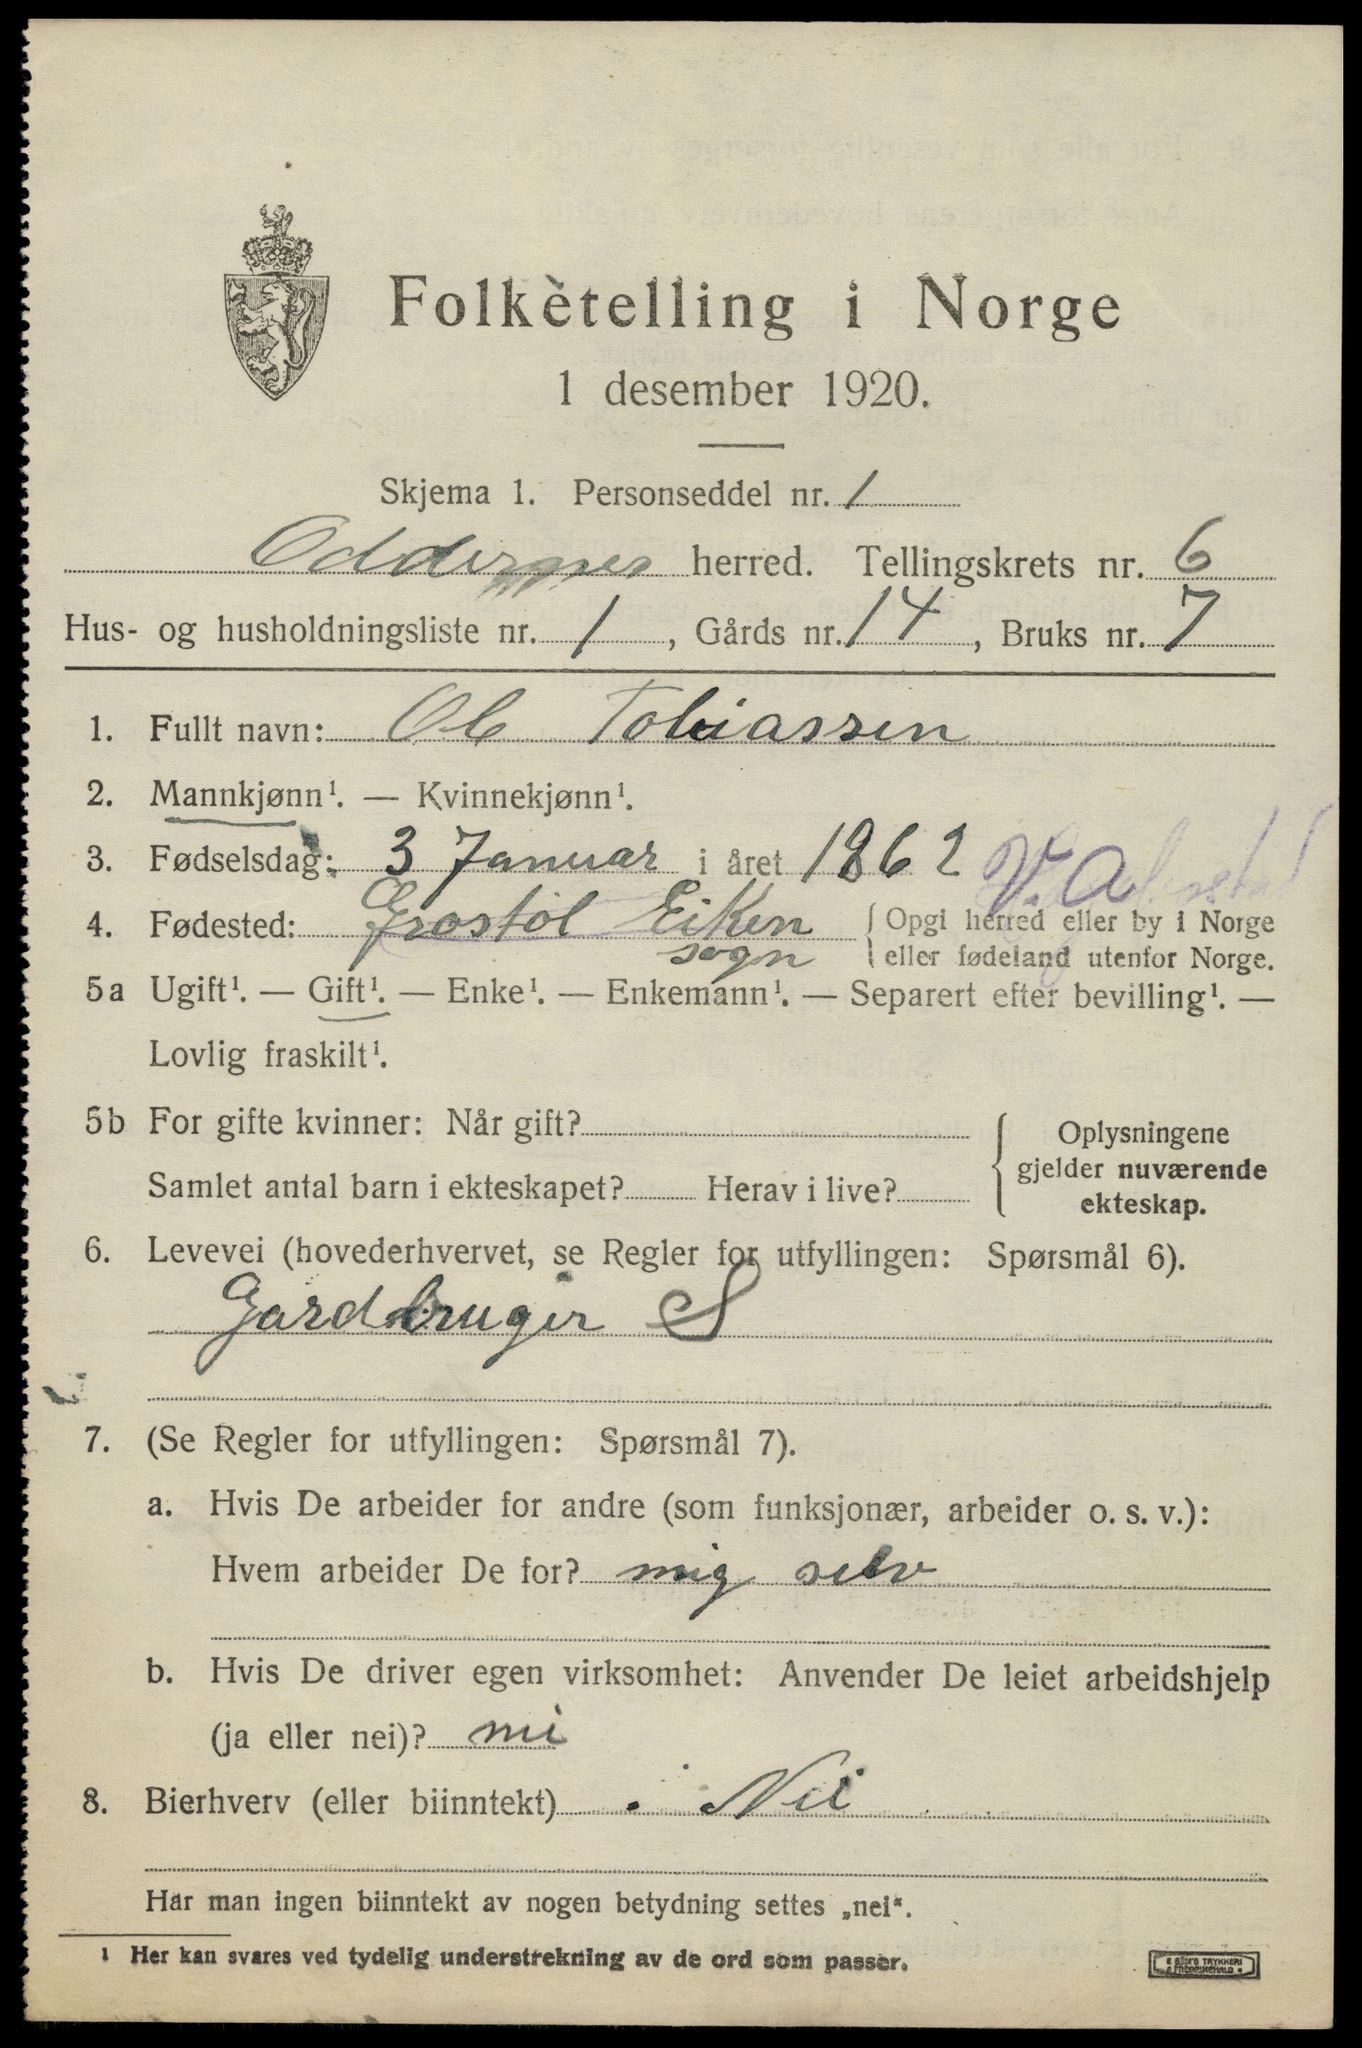 Folketelling i Norge
1 desember 1920.
Skjema 1. Personseddel nr. 1
Oddernes herred. Tellingskrets nr. 6
Hus- og husholdningsliste nr. 1, Gårds nr. 14, Bruks nr. 7
1. Fullt navn: Ole Tobiassen
2. Mannkjønn¹. — Kvinnekjønn¹.
3. Fødselsdag: 3 Januar i året 1862 V. A
4. Fødested: Eiken { Opgi herred eller by i Norge
sogn eller fødeland utenfor Norge.
5a Ugift¹. — Gift¹. — Enke¹. — Enkemann¹. — Separert efter bevilling¹. —
Lovlig fraskilt¹.
5b For gifte kvinner: Når gift? { Oplysningene
gjelder nuværende
Samlet antal barn i ekteskapet? Herav i live?
ekteskap.
6. Levevei (hovederhvervet, se Regler for utfyllingen: Spørsmål 6).
Gardbruger S
7. (Se Regler for utfyllingen: Spørsmål 7).
a. Hvis De arbeider for andre (som funksjonær, arbeider o. s. v.):
Hvem arbeider De for? mig selv
b. Hvis De driver egen virksomhet: Anvender De leiet arbeidshjelp
(ja eller nei)? nei
8. Bierhverv (eller biinntekt) Nei
Har man ingen biinntekt av nogen betydning settes „nei“.
¹ Her kan svares ved tydelig understrekning av de ord som passer.